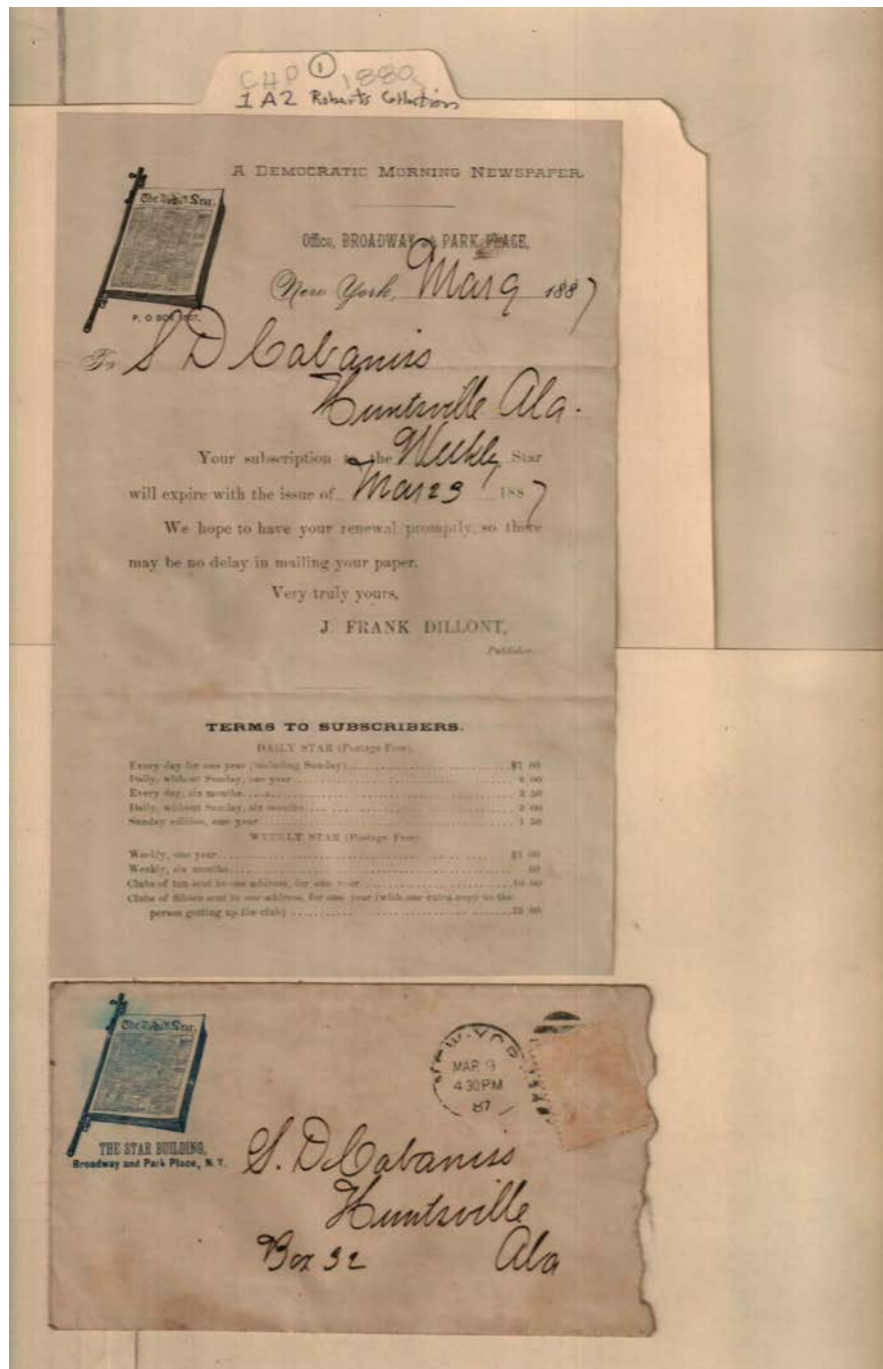 CHP ① 1880s
1A2 Roberts Collection
A DEMOCRATIC MORNING NEWSPAPER.
Office, BROADWAY and PARK PLACE,
New York, Mar 9 1887
P. O BOX
To S D Cabaniss
Huntsville Ala.
Your subscription to the Weekly Star
will expire with the issue of Mar 23 1887
We hope to have your renewal promptly, so there
may be no delay in mailing your paper.
Very truly yours,
J. FRANK DILLONT,
Publisher.
TERMS TO SUBSCRIBERS.
DAILY STAR (Postage Free).
Every day for one year (including Sunday) $7 00
Daily, without Sunday, one year 6 00
Every day, six months 3 50
Daily, without Sunday, six months 3 00
Sunday edition, one year 1 50
WEEKLY STAR (Postage Free)
Weekly, one year $1 00
Weekly, six months 50
Clubs of ten sent to one address, for one year 10 00
Clubs of fifteen sent to one address, for one year (with one extra copy to the
person getting up the club) 15 00
THE STAR BUILDING,
Broadway and Park Place, N. Y.
MAR 9
4 30 PM
87
S. D Cabaniss
Huntsville
Box 32 Ala